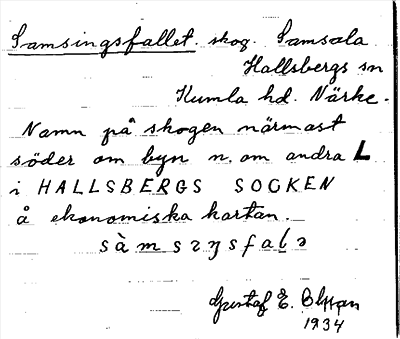 Samsingsfallet. skog. Samsala
Hallsbergs sn
Kumla hd. Närke.
Namn på skogen närmast
söder om byn n. om andra L
i HALLSBERGS SOCKEN
å ekonomiska kartan.
Gustaf E.
1934